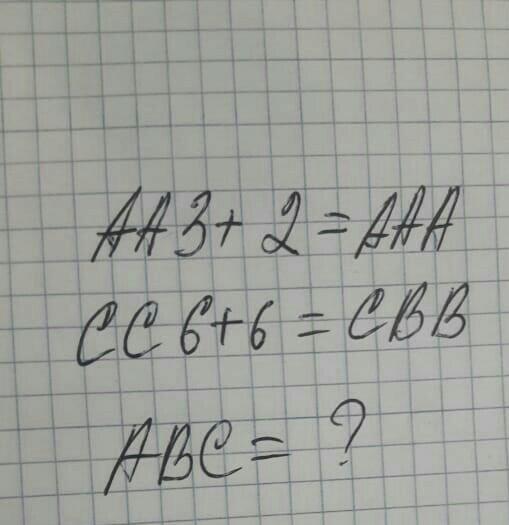 AA3+ 2 = AAA
CC6+6 = CBB
ABC= ?